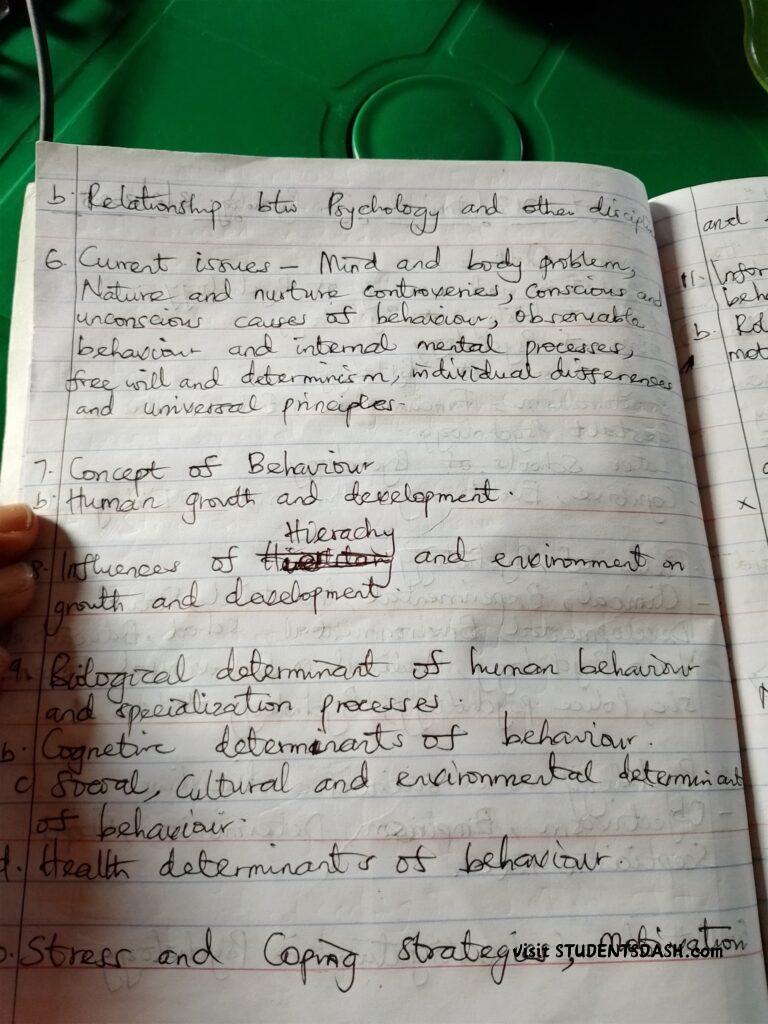 b. Relationship btw Psychology and other discipl
6. Current issues – Mind and body problem,
Nature and nurture controveries, conscious and
unconscious causes of behaviour, observable
behaviour and internal mental processes,
free will and determinism, individual differences
and universal principles.
7. Concept of Behaviour
b. Human growth and development.
Hierachy
8. Influences of and environment on
growth and development.
9. Biological determinant of human behaviour
and specialization processes.
b. Cognetive determinants of behaviour.
c Social, Cultural and environmental determinant
of behaviour.
d. Health determinants of behaviour.
Stress and Coping strategies, Motivation
visit STUDENTSDASH.com
and
11. Infor
beha
b. Rol
mot
x